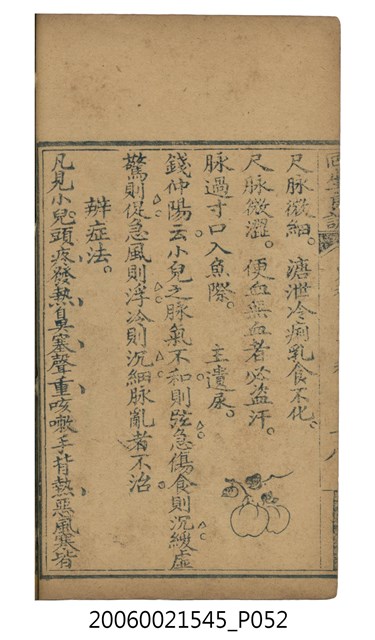 尺脉微細。溏泄冷痢乳食不化。
尺脉微澀。便血無血者必盜汗。
脉過寸口入魚際。 主遺尿。
錢仲陽云小兒之脉氣不和則弦急傷食則沉緩虛
驚則促急風則浮冷則沉細脉亂者不治
辨症法。
凡見小兒頭疼發熱鼻塞聲重咳嗽手背熱惡風寒皆
20060021545_P052